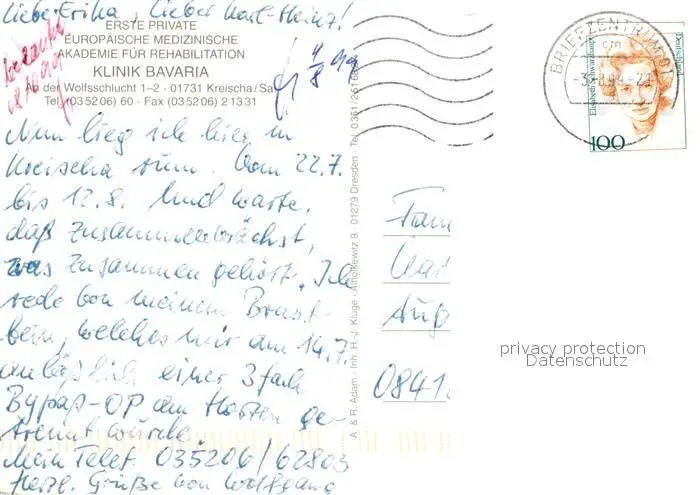 Liebe Erika, Lieber Karl-Heinz!
ERSTE PRIVATE
EUROPÄISCHE MEDIZINISCHE
AKADEMIE FÜR REHABILITATION
KLINIK BAVARIA
An der Wolfsschlucht 1–2 · 01731 Kreischa/Sa
Tel. (03 52 06) 60 · Fax (03 52 06) 2 13 31
Nun lieg ich hier in
Kreischa rum. Vom 22.7.
bis 12.8. Und warte,
daß zusammenwächst,
was zusammen gehört. Ich
rede von meinem Brust
bein, welches mir am 14.7.
anläßlich einer 3fach
Bypaß-OP am Herzen ge-
trennt wurde.
Mein Telef. 035206/62803
Herzl. Grüße von Wolfgang
A & R. Adam · Inh. H.-J. Kluge · Altnolkewitz 9 · 01279 Dresden · Tel. 0351/251
BRIEFZENTRUM 01
Elisabeth Schwarzhaupt
Deutschland
100
Fam
Aug
0841
privacy protection
Datenschutz